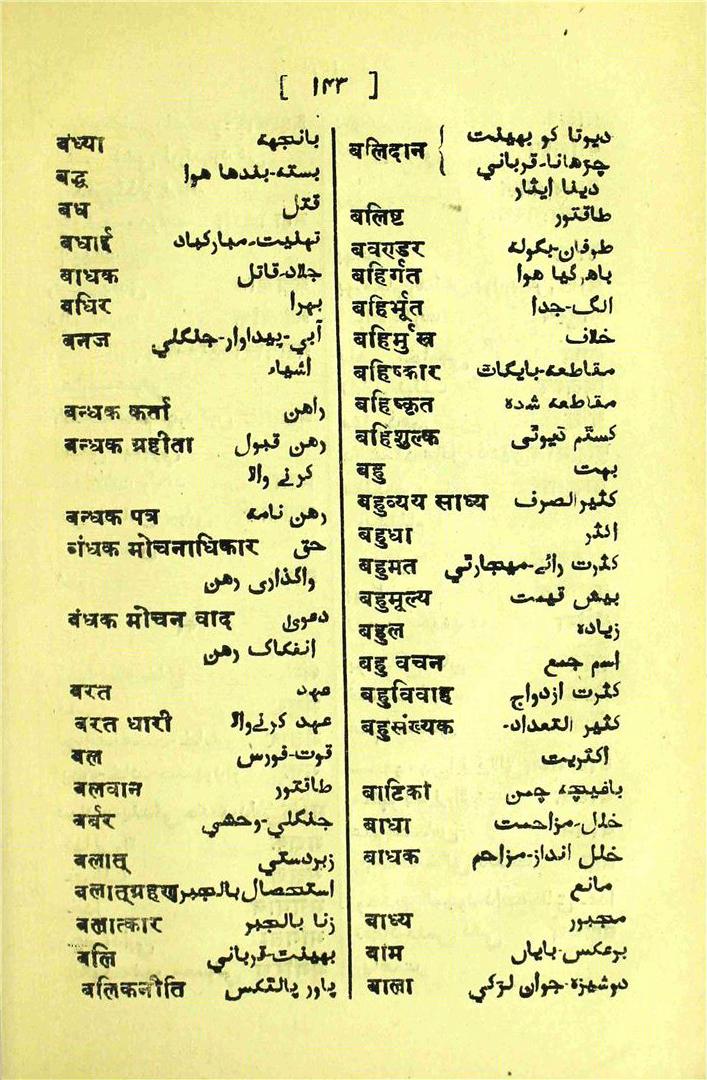 [ ۱۴۳ ]
बंध्या بانجھہ
बद्ध بستہ-بندھا ہوا
बध قتل
बधाई تہنیت-مبارکباد
बाधक جلاد-قاتل
बधिर بہرا
बनज آبی-پیداوار-جنگلی
اشیاء
बन्धक कर्ता راہن
बन्धक ग्रहीता رہن قبول
کرنے والا
बन्धक पत्र رہن نامہ
बंधक मोचनाधिकार حق
واگذاری رہن
बंधक मोचन वाद دعویٰ
انفکاک رہن
बरत عہد
बरत धारी عہد کرنےوالا
बल قوت-فورس
बलवान طاقتور
बर्बर جنگلی-وحشی
बलात् زبردستی
बलात्ग्रहण استحصال بالجبر
बलात्कार زنا بالجبر
बलि بھینٹ-قربانی
बलिकनीति پاور پالٹکس
बलिदान { دیوتا کو بھینٹ
چڑھانا-قربانی
دینا ایثار
बलिष्ट طاقتور
बवण्डर طوفان-بگولہ
बहिर्गत باہر گیا ہوا
बहिर्भूत الگ-جدا
बहिर्मुख خلاف
बहिष्कार مقاطعہ-بایکاٹ
बहिष्कृत مقاطعہ شدہ
बहिशुल्क کسٹم ڈیوٹی
बहु بہت
बहुव्यय साध्य کثیر الصرف
बहुधा اکثر
बहुमत کثرت رائے-میجارٹی
बहुमूल्य بیش قیمت
बहुल زیادہ
बहु वचन اسم جمع
बहुविवाह کثرت ازدواج
बहुसंख्यक کثیر التعداد-
اکثریت
बाटिका باغیچہ چمن
बाधा خلل-مزاحمت
बाधक خلل انداز-مزاحم
مانع
बाध्य مجبور
बाम برعکس-بایاں
बाला دوشیزہ-جوان لڑکی